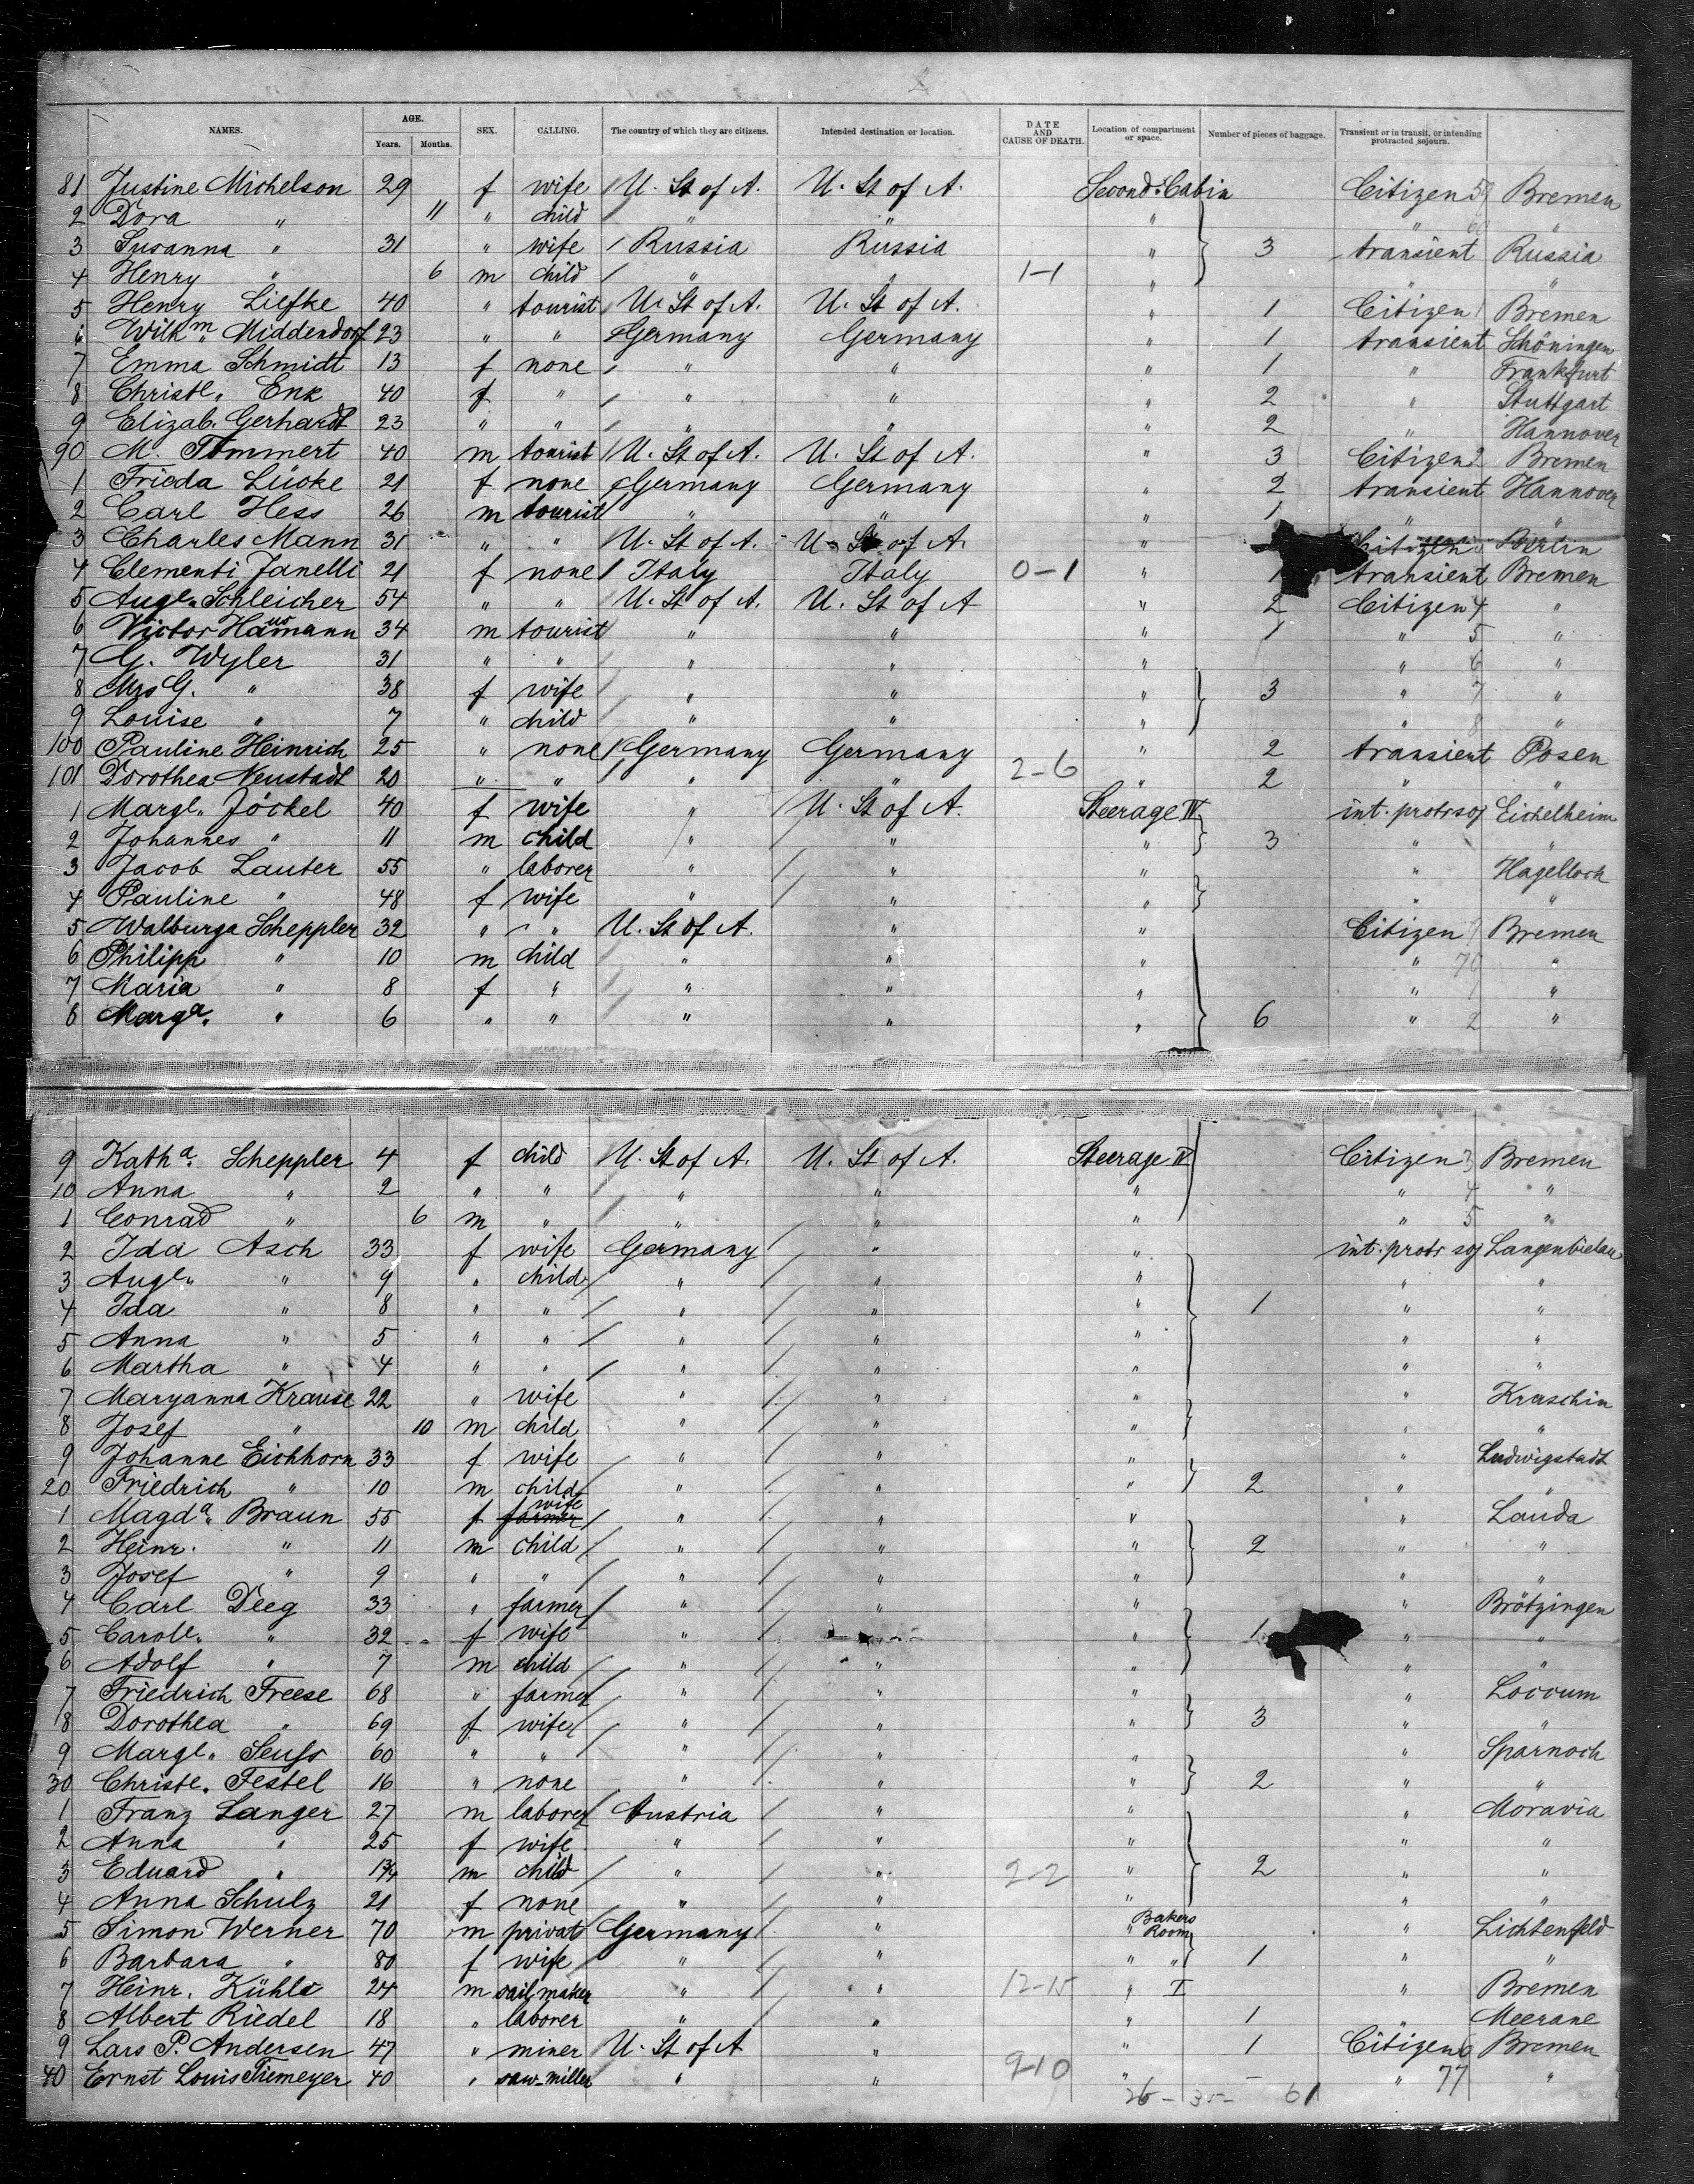 NAMES. AGE. Years. Months. SEX. CALLING. The country of which they are citizens. Intended destination or location. DATE AND CAUSE OF DEATH. Location of compartment or space. Number of pieces of baggage. Transient or in transit, or intending protracted sojourn.
81 Justine Michelson 29 f wife U. St of A. U. St of A. Second Cabin Citizen 59 Bremen
2 Dora " 11 " child " " " " 60 "
3 Susanna " 31 " wife Russia Russia " 3 transient Russia
4 Henry " 6 m child " " 1-1 " " "
5 Henry Liefke 40 " tourist U. St of A. U. St of A. " 1 Citizen 1 Bremen
6 Wilhm. Middendorf 23 " " Germany Germany " 1 transient Schöningen
7 Emma Schmidt 13 f none " " " 1 " Frankfurt
8 Christe. Enk 40 f " " " " 2 " Stuttgart
9 Elizab. Gerhardt 23 " " " " " 2 " Hannover
90 M. Tommert 40 m tourist U. St of A. U. St of A. " 3 Citizen 2 Bremen
1 Frieda Lücke 21 f none Germany Germany " 2 transient Hannover
2 Carl Hess 26 m tourist " " " 1 " "
3 Charles Mann 31 " " U. St of A. U. St of A. " Citizen Berlin
4 Clementi Janelli 21 f none Italy Italy 0-1 " 1 transient Bremen
5 Augte. Schleicher 54 " " U. St of A. U. St of A " 2 Citizen 4 "
6 Victor Hausmann 34 m tourist " " " 1 " 5 "
7 G. Wyler 31 " " " " " " 6 "
8 Mrs G. " 38 f wife " " " 3 " 7 "
9 Louise " 7 " child " " " " 8 "
100 Pauline Heinrich 25 " none Germany Germany " 2 transient Posen
101 Dorothea Neustadt 20 " " " " 2-6 " 2 " "
1 Margte. Jöckel 40 f wife " U. St of A. Steerage IV int. protr soj Eichelheim
2 Johannes " 11 m child " " " 3 " "
3 Jacob Lauter 55 " laborer " " " " Hagelloch
4 Pauline " 48 f wife " " " " "
5 Walburga Scheppler 32 " " U. St of A. " " Citizen 9 Bremen
6 Philipp " 10 m child " " " " 70 "
7 Maria " 8 f " " " " " 1 "
8 Marga. " 6 " " " " " 6 " 2 "
9 Katha. Scheppler 4 f child U. St of A. U. St of A. Steerage IV Citizen 3 Bremen
10 Anna " 2 " " " " " " 4 "
1 Conrad " 6 m " " " " " 5 "
2 Ida Asch 33 f wife Germany " " int. protr soj Langenbielau
3 Augte. " 9 " child " " " " "
4 Ida " 8 " " " " " 1 " "
5 Anna " 5 " " " " " " "
6 Martha " 4 " " " " " " "
7 Maryanna Krause 22 " wife " " " " Kraschin
8 Josef " 10 m child " " " " "
9 Johanne Eichhorn 33 f wife " " " " Ludwigstadt
20 Friedrich " 10 m child " " " 2 " "
1 Magda. Braun 55 f farmer wife " " " " Lauda
2 Heinr. " 11 m child " " " 2 " "
3 Josef " 9 " " " " " " "
4 Carl Deeg 33 " farmer " " " " Brötzingen
5 Carole. " 32 f wife " " 1 " "
6 Adolf " 7 m child " " " " "
7 Friedrich Freese 68 " farmer " " " " Loccum
8 Dorothea " 69 f wife " " " 3 " "
9 Margte. Seuss 60 " " " " " " Sparnoch
30 Christe. Festel 16 " none " " " 2 " "
1 Franz Langer 27 m laborer Austria " " " Moravia
2 Anna " 25 f wife " " " " "
3 Eduard " m child " " 2-2 " 2 " "
4 Anna Schulz 21 f none " " " " "
5 Simon Werner 70 m privat Germany " " Bakers Room " Lichtenfeld
6 Barbara " 80 f wife " " " " 1 " "
7 Heinr. Kühle 24 m sailmaker " " 12-15 " I " Bremen
8 Albert Riedel 18 " laborer " " " 1 " Meerane
9 Lars P. Andersen 47 " miner U. St of A " " 1 Citizen 6 Bremen
40 Ernst Louis Tiemeyer 40 " saw-miller " " 9-10 " - " 77 "
26 - 35 - 61